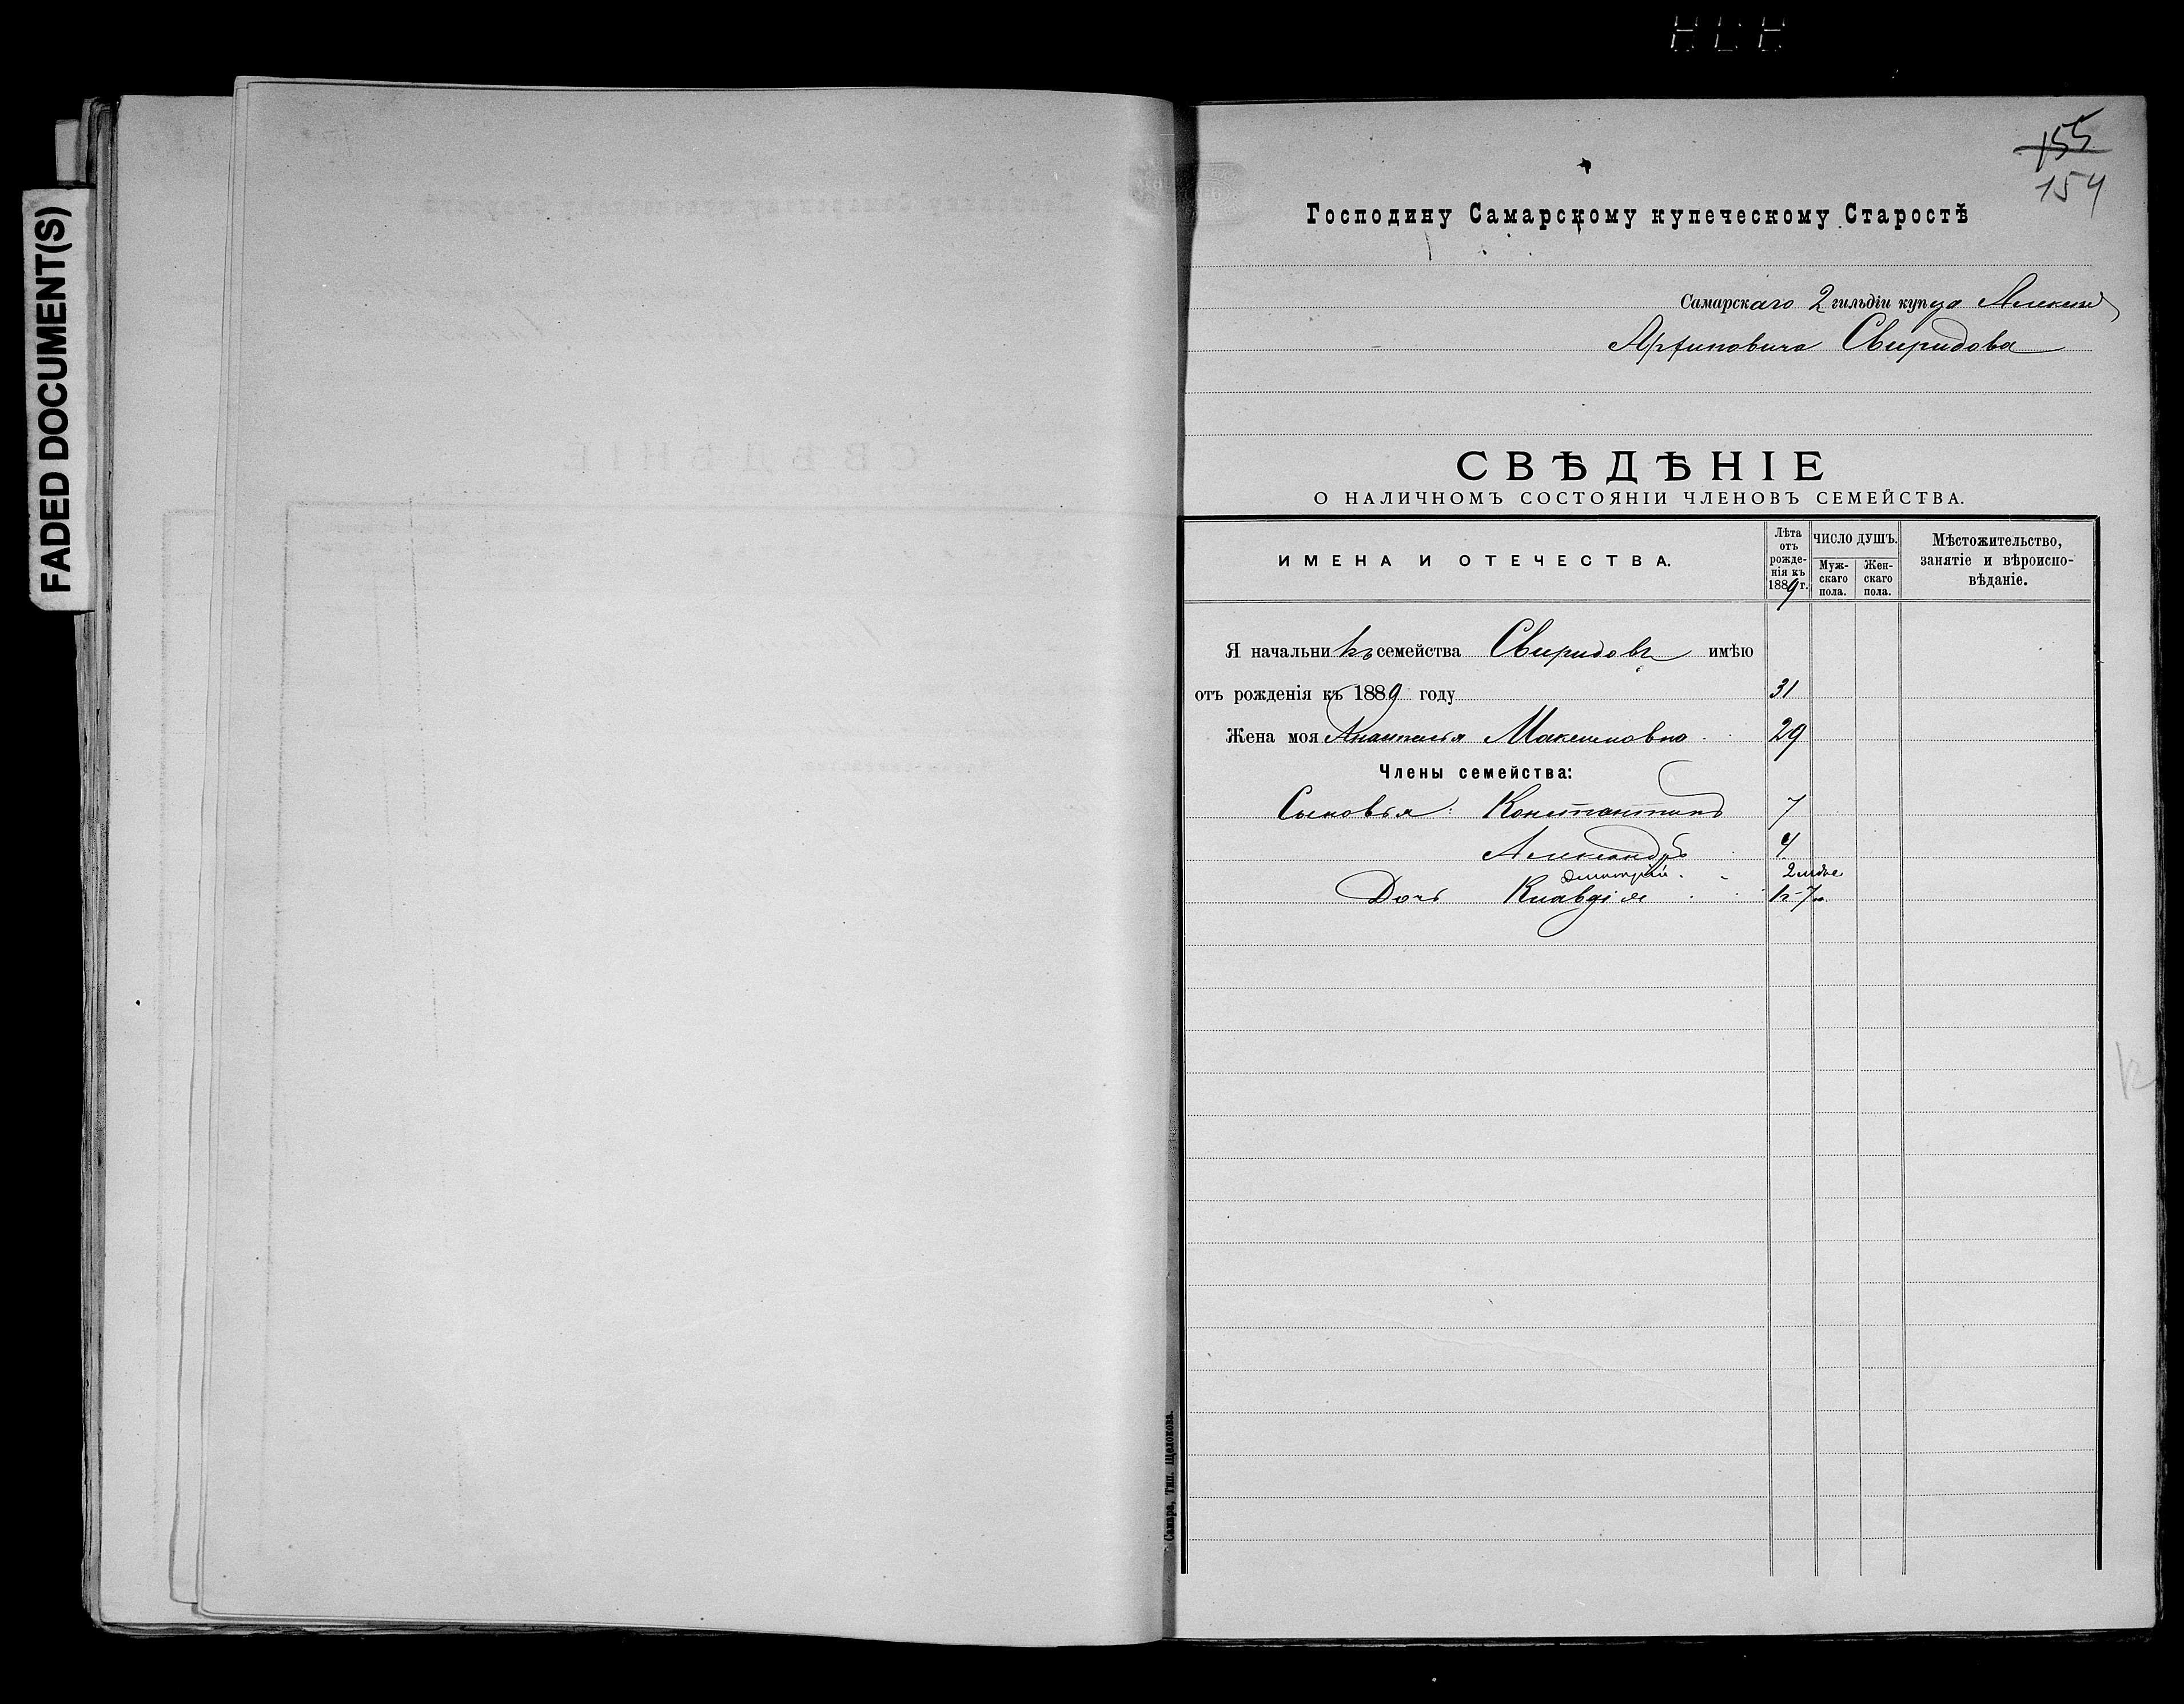 FADED DOCUMENT(S)
155
154
Господину Самарскому купеческому Старостѣ
Самарскаго 2 гильдіи купца Алексѣя
Свиридова
СВѢДѢНІЕ
О НАЛИЧНОМЪ СОСТОЯНІИ ЧЛЕНОВЪ СЕМЕЙСТВА.
ИМЕНА И ОТЕЧЕСТВА.
Лѣта отъ рожде-нія къ 1889 г.
ЧИСЛО ДУШЪ.
Муж-скаго пола.
Жен-скаго пола.
Мѣстожительство, занятіе и вѣроиспо-вѣданіе.
Я начальникъ семейства Свиридовъ имѣю
отъ рожденія къ 1889 году 31
Жена моя Анастасья Максимовна 29
Члены семейства:
Сыновья: Константинъ 7
Александръ 4
Дмитрій
Дочь Клавдія
Самара, Тип. Щелокова.